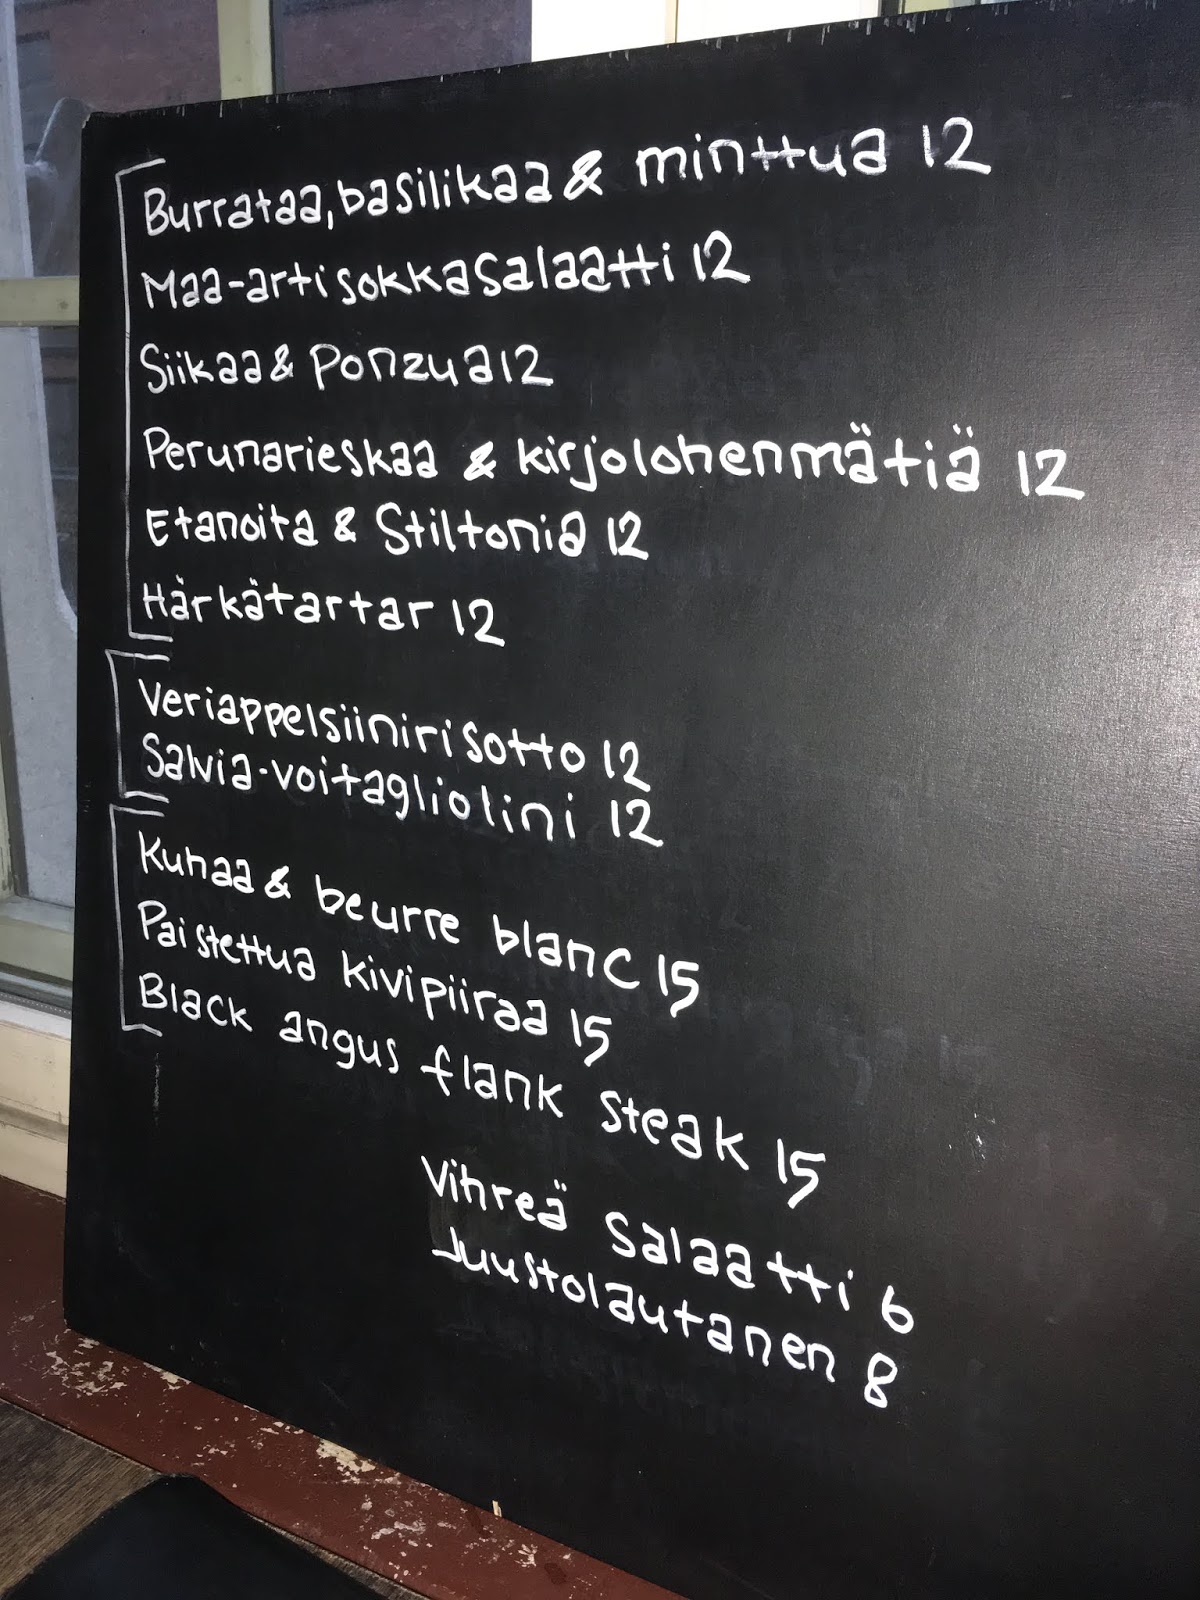 Burrataa, basilikaa & minttua 12
Maa-artisokkasalaatti 12
Siikaa & Ponzua 12
Perunarieskaa & kirjolohenmätiä 12
Etanoita & Stiltonia 12
Härkätartar 12
Veriappelsiinirisotto 12
Salvia-voitagliolini 12
Kuhaa & beurre blanc 15
Paistettua kivipiiraa 15
Black angus flank steak 15
Vihreä salaatti 6
Juustolautanen 8